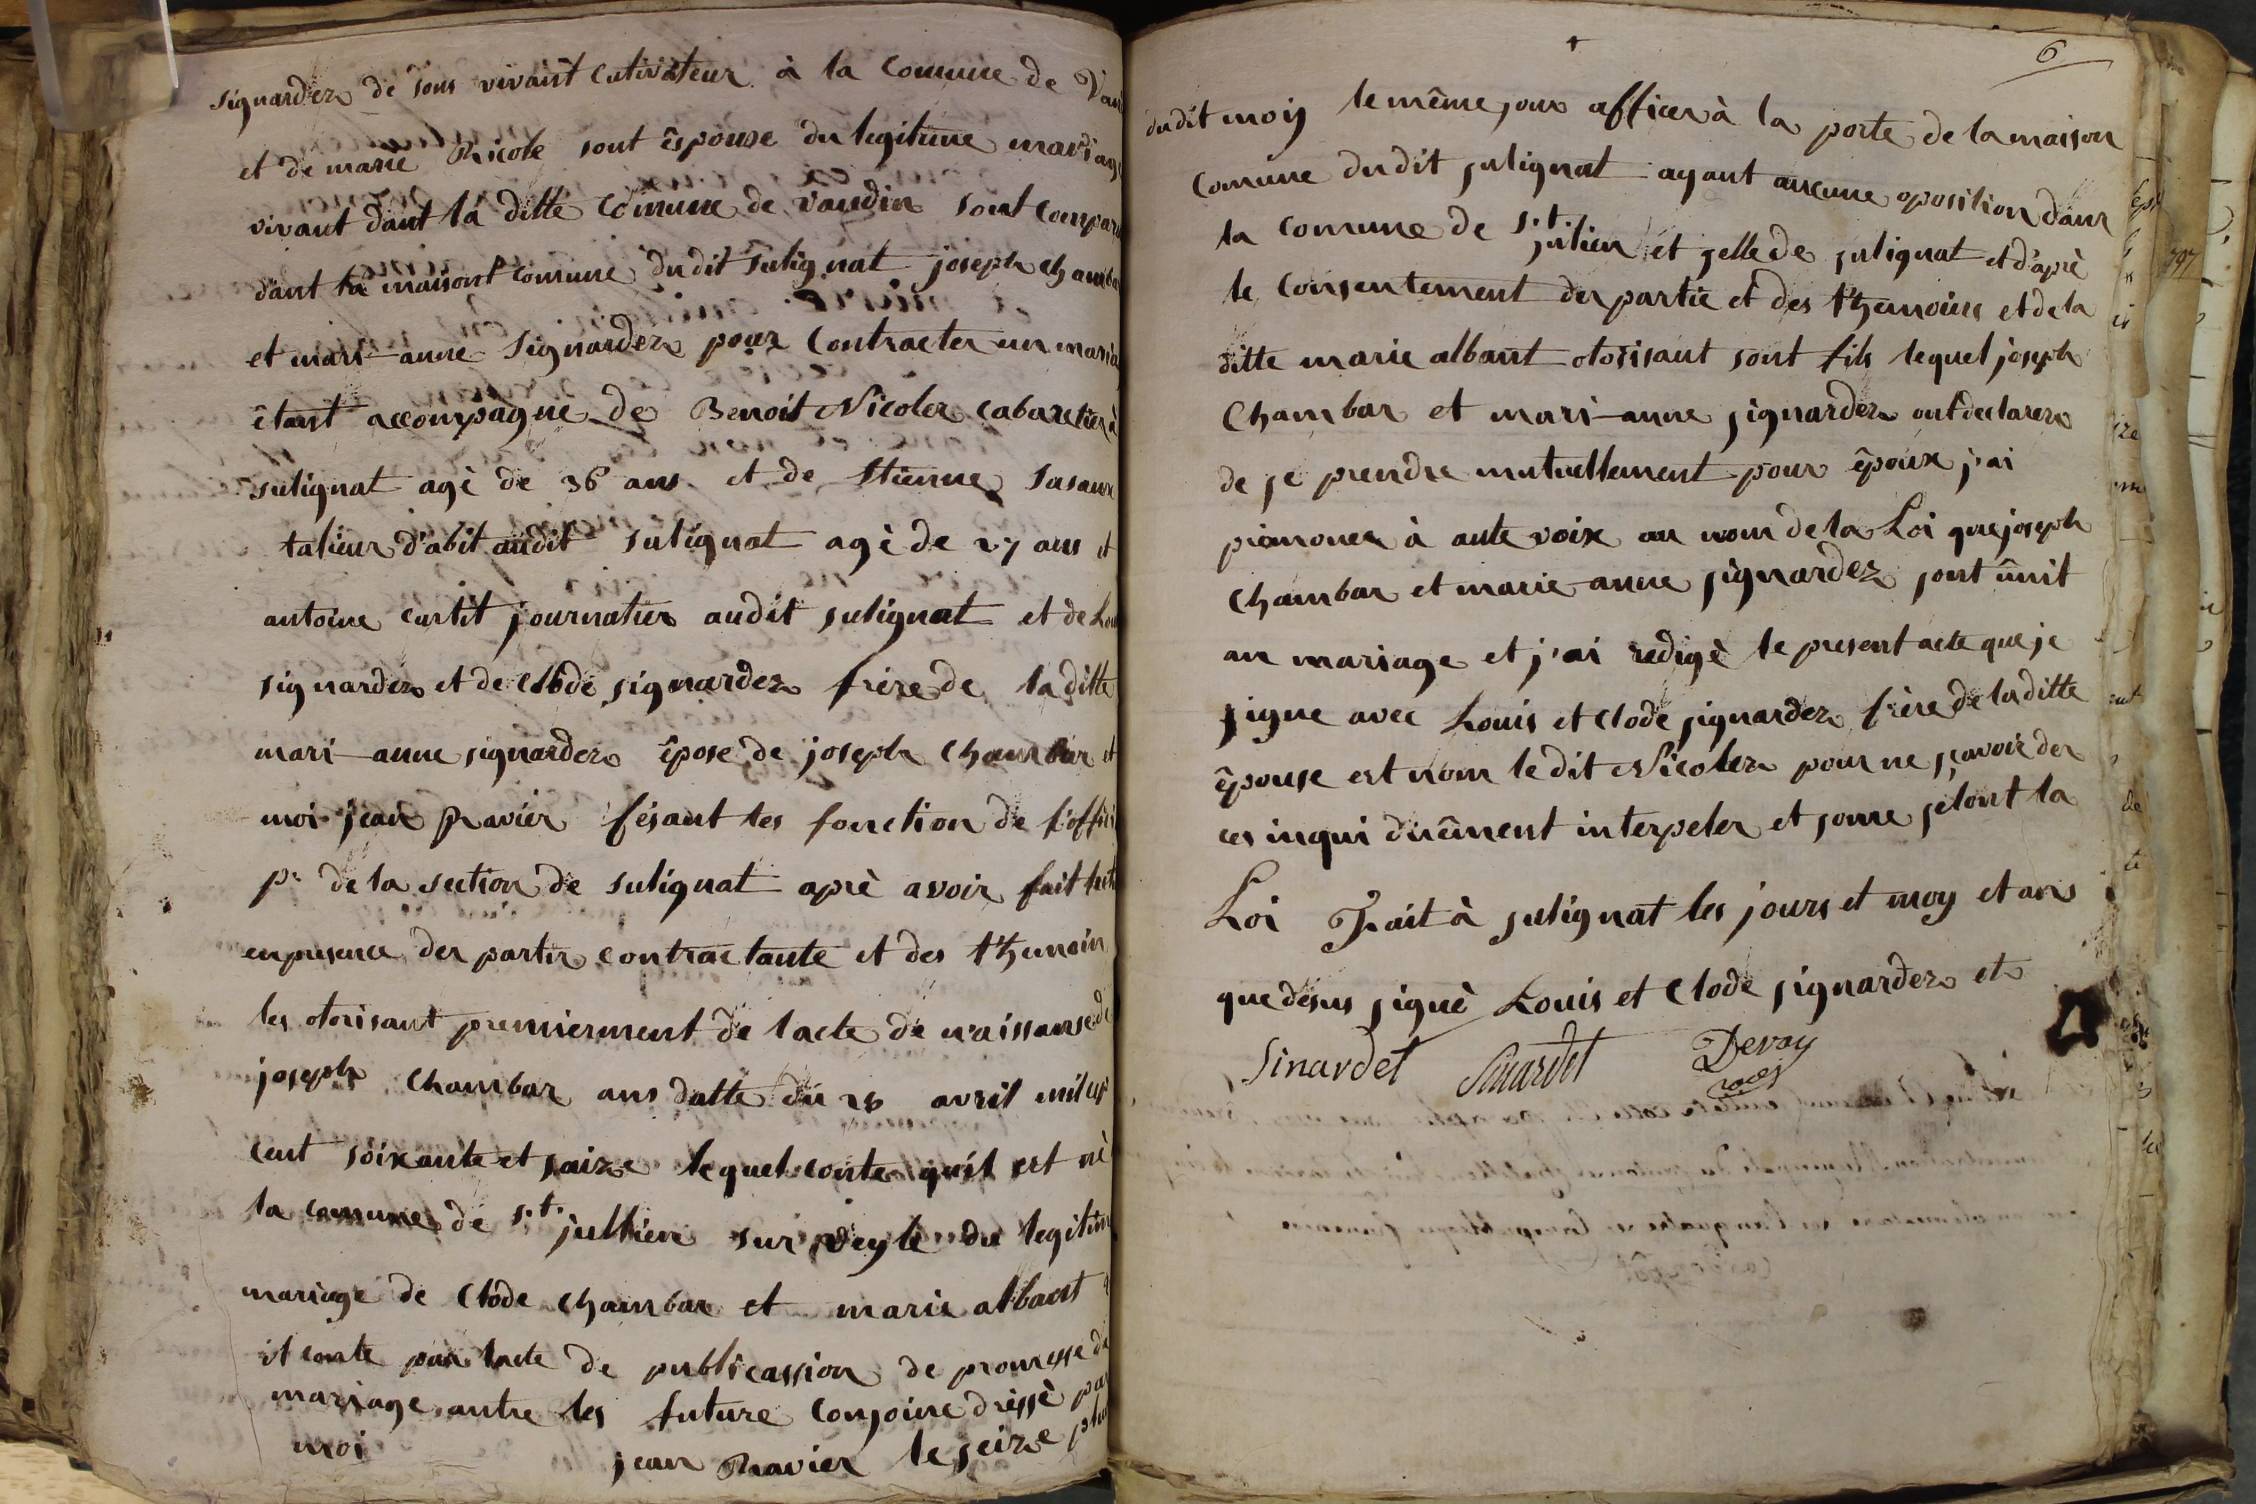 signardez de sons vivant cutivateur à la Comune de Van
et de marie Ricole sont êpouse du legitime mariage
vivant dant la ditte Comune de vandin sont compar
dant la maisont Comune dudit Sulignat joseph Chambar
et mari-anne Signardez pour Contracter un maria
êtant accompagne de Benoit Nicoler cabaretier à
sulignat agè de 36 ans et de Etienne
talieur d'abit audit Sulignat agè de 27 ans et
antoine curtit journatier audit sulignat et de Lou
signardez et de Clode signardez frere de la ditte
mari-anne signardez êpose de joseph Chambar et
moi jean Ravier fésant les fonction de l'offic
p. de la section de sulignat aprè avoir fait lect
en presence der partie contractante et des thémoin
les otorisant premierment de lacte de naissanse de
joseph Chambar ans datte du 28 avril mil sep
cent soixante et saize lequel conte qu'il est nè
la comune de s.t. jullien sur veyle du legitim
mariage de Clode Chambar et marie albant
il conte par lacte de publicassion de promesse de
mariage antre les future Conjoine dressè par
moi jean Ravier le seize plu
6
dudit moy le même jour afficer à la porte de la maison
Comune dudit sulignat ayant aucune oposition dans
la Comune de s.t. julien et selle de sulignat et d'aprè
le Consentement der partie et des thémoins et de la
ditte marie albant otorisant sont fils lequel joseph
Chambar et mari-anne signardez ont declarer
de se prendre mutuellement pour êpoux j'ai
prononcer à aute voix au nom de la Loi que joseph
Chambar et marie-anne signardez sont ûnit
an mariage et j'ai redigè le present acte que je
signe avec Louis et Clode signardez frère de la ditte
êpouse est nom le dit Nicoler pour ne sçavoir der
ces inqui dûement interpeler et some selont la
Loi Fait à sulignat les jours et moy et ans
que desus signè Louis et Clode signardez et
Sinardet Sinardet Devoy